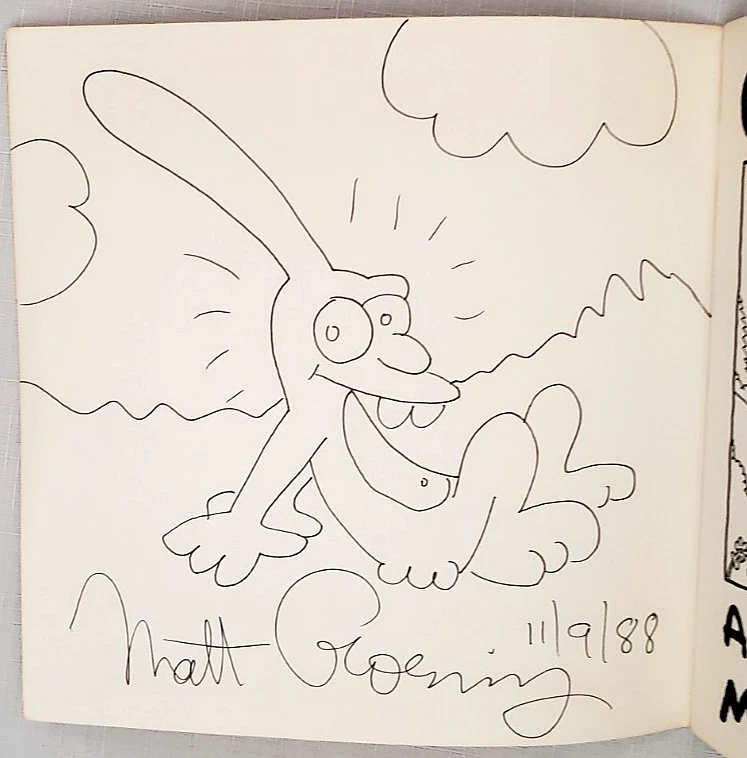 Matt Groening 11/9/88
A
M